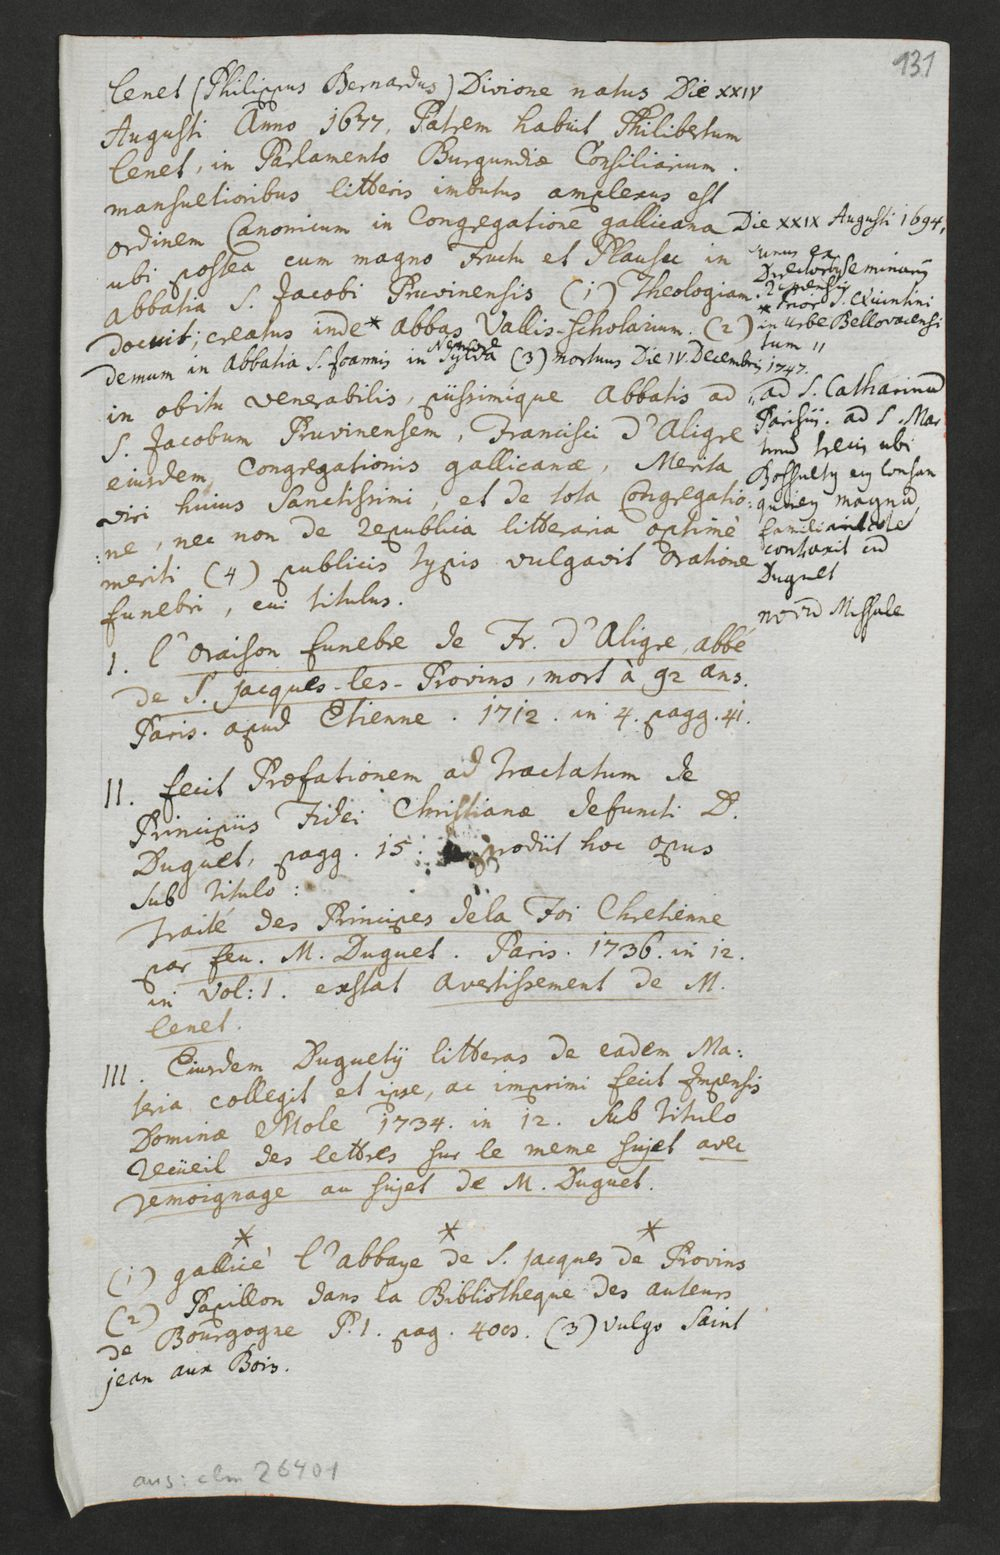 131
Lenet (Philippus Bernardus) Divione natus Die XXIV
Augusti Anno 1677, Patrem habuit Philibertum
Lenet, in Parlamento Burgundiæ Consiliarium.
mansuetioribus litteris imbutus amplexus est
ordinem Canonicum in Congregatione gallicana Die XXIX Augusti 1694,
ubi postea cum magno Fructu et Plausu in
abbatia S. Jacobi Pruvinensis (1) Theologiam
docuit; creatus inde * abbas Vallis-Scholarium. (2)
demum in Abbatia S. Joannis in Sylva (3) mortuus Die IV Decembris 1747.
Nemore
unus ex
Directorib Seminarij
* Prior S. Quintini
in Urbe Bellovacensi
tum "
in obitu venerabilis, piissimique Abbatis ad
S. Jacobum Pruvinensem, Francisci D'Aligre
eiusdem Congregationis gallicanæ, Merita
viri huius Sanctissimi, et de tota Congregatio:
:ne, nec non de republica litteraria optimè
meriti (4) publicis typis vulgavit oratione
funebri, cui titulus.
" ad S. Catharinam
Parisiis. ad S. Mar
tinum Trecis ubi
Bossuety ejus consan
guiney magnam
familiaritatem
contraxit cum
Duguet
novum Missale
I. l'oraison funebre de Fr. D'Aligre, abbé
de S. Jacques-les-Provins, mort à 92 ans.
Paris. apud Etienne. 1712. in 4. pagg. 41.
II. fecit Præfationem ad Tractatum de
Principiis Fidei Christianæ defuncti D.
Duguet, pagg. 15. prodiit hoc opus
sub titulo:
Traité des Principes de la Foi Chretienne
par feu. M. Duguet. Paris. 1736. in 12.
in vol: 1. exstat avertissement de M.
Lenet.
III. Eiusdem Duguetij litteras de eadem Ma:
teria collegit et ipse, ac imprimi fecit Impensis
Dominæ Mole 1734. in 12. sub titulo
recüeil des lettres sur le meme sujet avec
temoignage au sujet de M. Duguet.
* * *
(1) gallicè l'abbaye de S. jacques de Provins
(2) Papillon dans la Bibliotheque des auteurs
de Bourgogne P. 1. pag. 400. (3) vulgo Saint
jean aux Bois.
aus: clm 26401